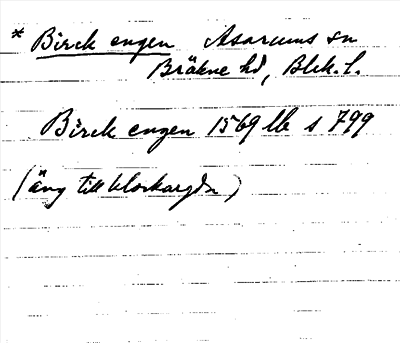 * Birck engen Asarums sn
Bräkne hd, Blek. l.
Birck engen 1569 lb s 799
(äng till klockargdn)